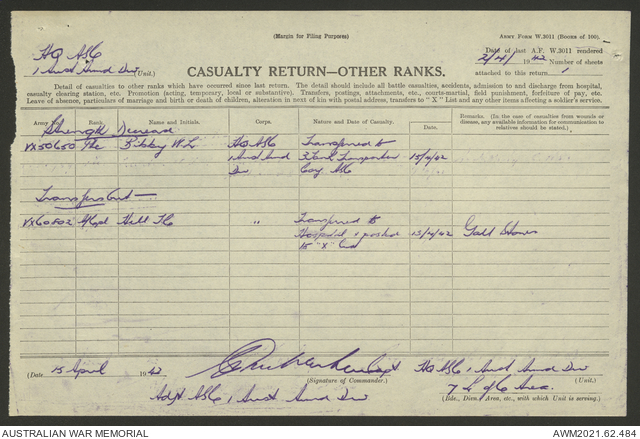 (Margin for Filing Purposes)
ARMY FORM W.3011 (BOOKS OF 100).
HQ ASC
1 Aust Armd Div (Unit.)
Date of last A.F. W.3011 rendered
2/4/1942 Number of sheets
attached to this return 1
CASUALTY RETURN—OTHER RANKS.
Detail of casualties to other ranks which have occurred since last return. The detail should include all battle casualties, accidents, admission to and discharge from hospital,
casualty clearing station, etc. Promotion (acting, temporary, local or substantive). Transfers, postings, attachments, etc., courts-martial, field punishment, forfeiture of pay, etc.
Leave of absence, particulars of marriage and birth or death of children, alteration in next of kin with postal address, transfers to "X" List and any other items affecting a soldier's service.
Army No. Rank. Name and Initials. Corps. Nature and Date of Casualty. Date. Remarks. (In the case of casualties from wounds or disease, any available information for communication to relatives should be stated.)
Strength Decrease
VX50650 Pte Bibby W L HQ ASC Transferred to
1 Aust Armd 3 Tank Transporter 15/4/42
Div Coy ASC
Transfers Out —
VX60802 Hill T G " Transferred to
Hospital & posted 13/4/42 Gall Stones
to "X" List
(Date 15 April 1942
(Signature of Commander.)
HQ ASC 1 Aust Armd Div
(Unit.)
Adjt ASC 1 Aust Armd Div
7 L of C Area.
(Bde., Divn., Area, etc., with which Unit is serving.)
AUSTRALIAN WAR MEMORIAL
AWM2021.62.484